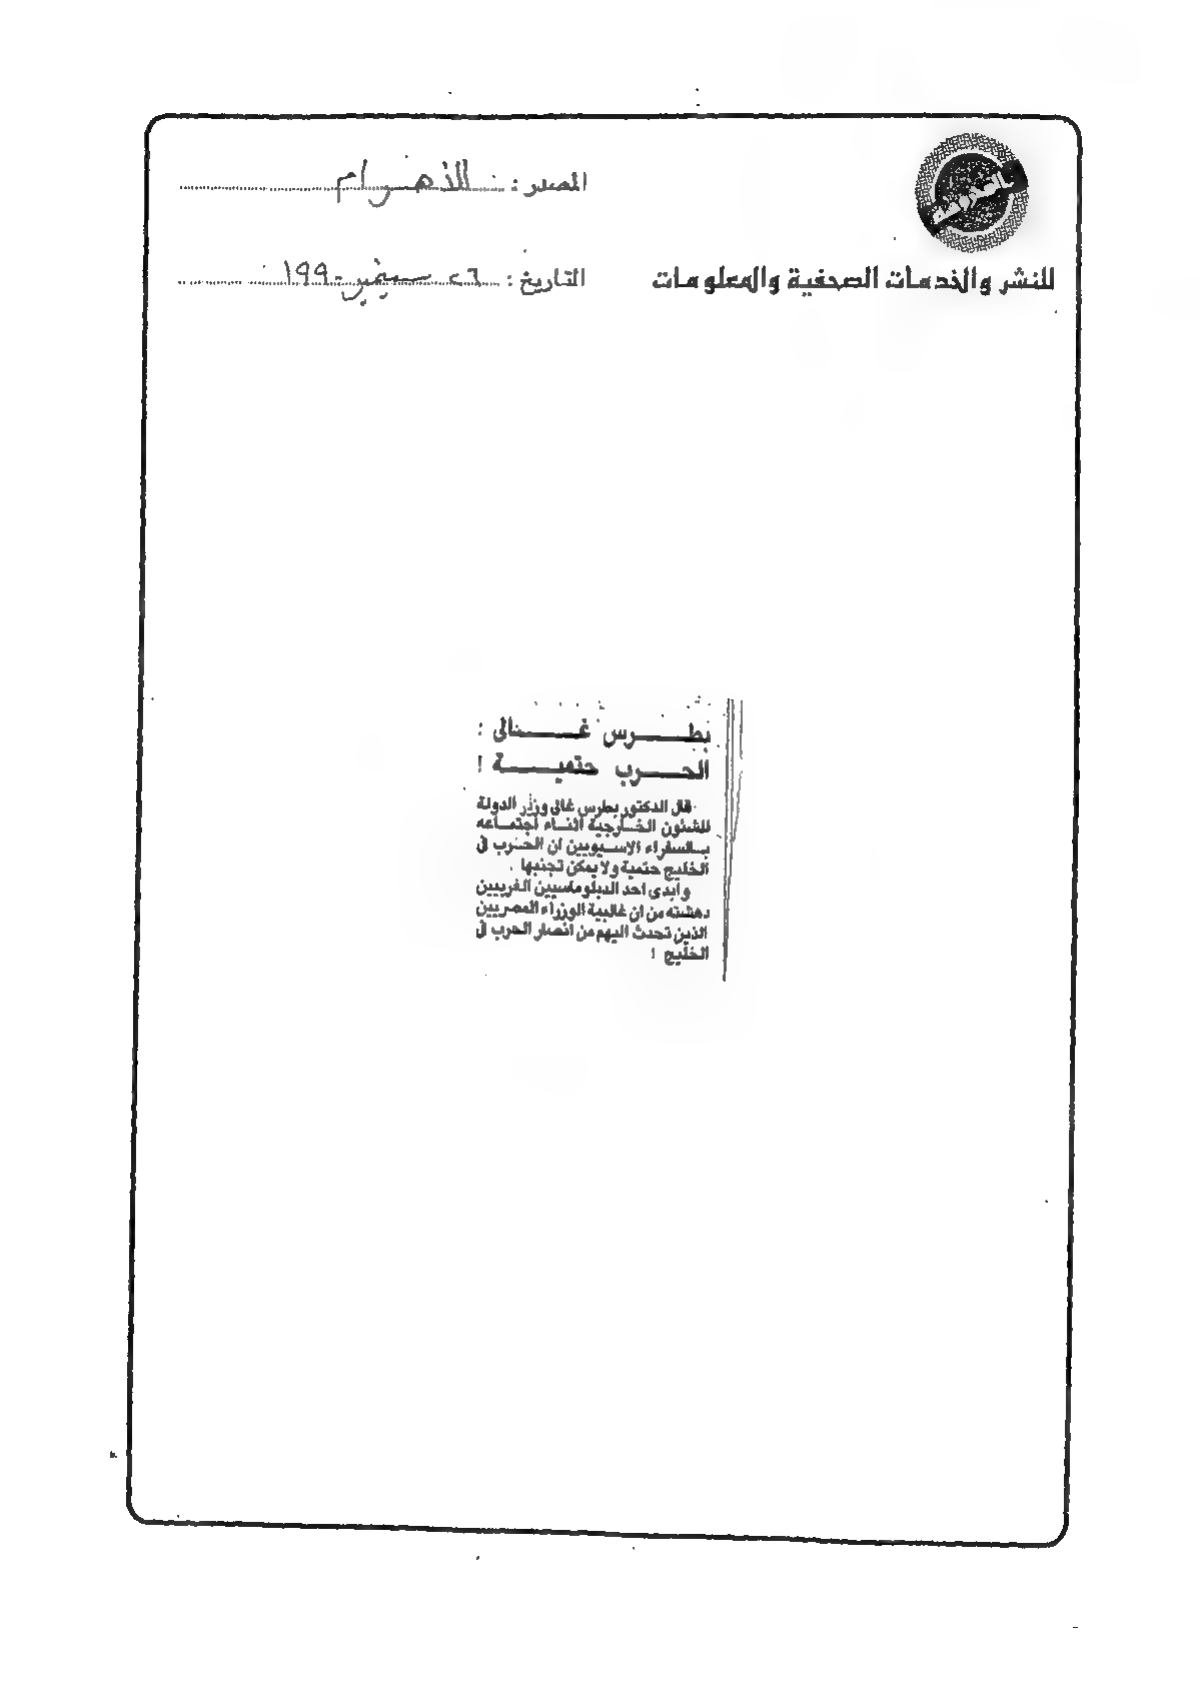 المصدر : الأهرام
للنشر والخدمات الصحفية والمعلومات
التاريخ : ٢٦ سبتمبر ١٩٩٠
بطرس غالى :
الحرب حتمية !
قال الدكتور بطرس غالى وزير الدولة
للشئون الخارجية اثناء اجتماعه
بالسفراء الاسيويين ان الحرب فى
الخليج حتمية ولا يمكن تجنبها .
وابدى احد الدبلوماسيين الغربيين
دهشته من ان غالبية الوزراء المصريين
الذين تحدث اليهم من انصار الحرب فى
الخليج !